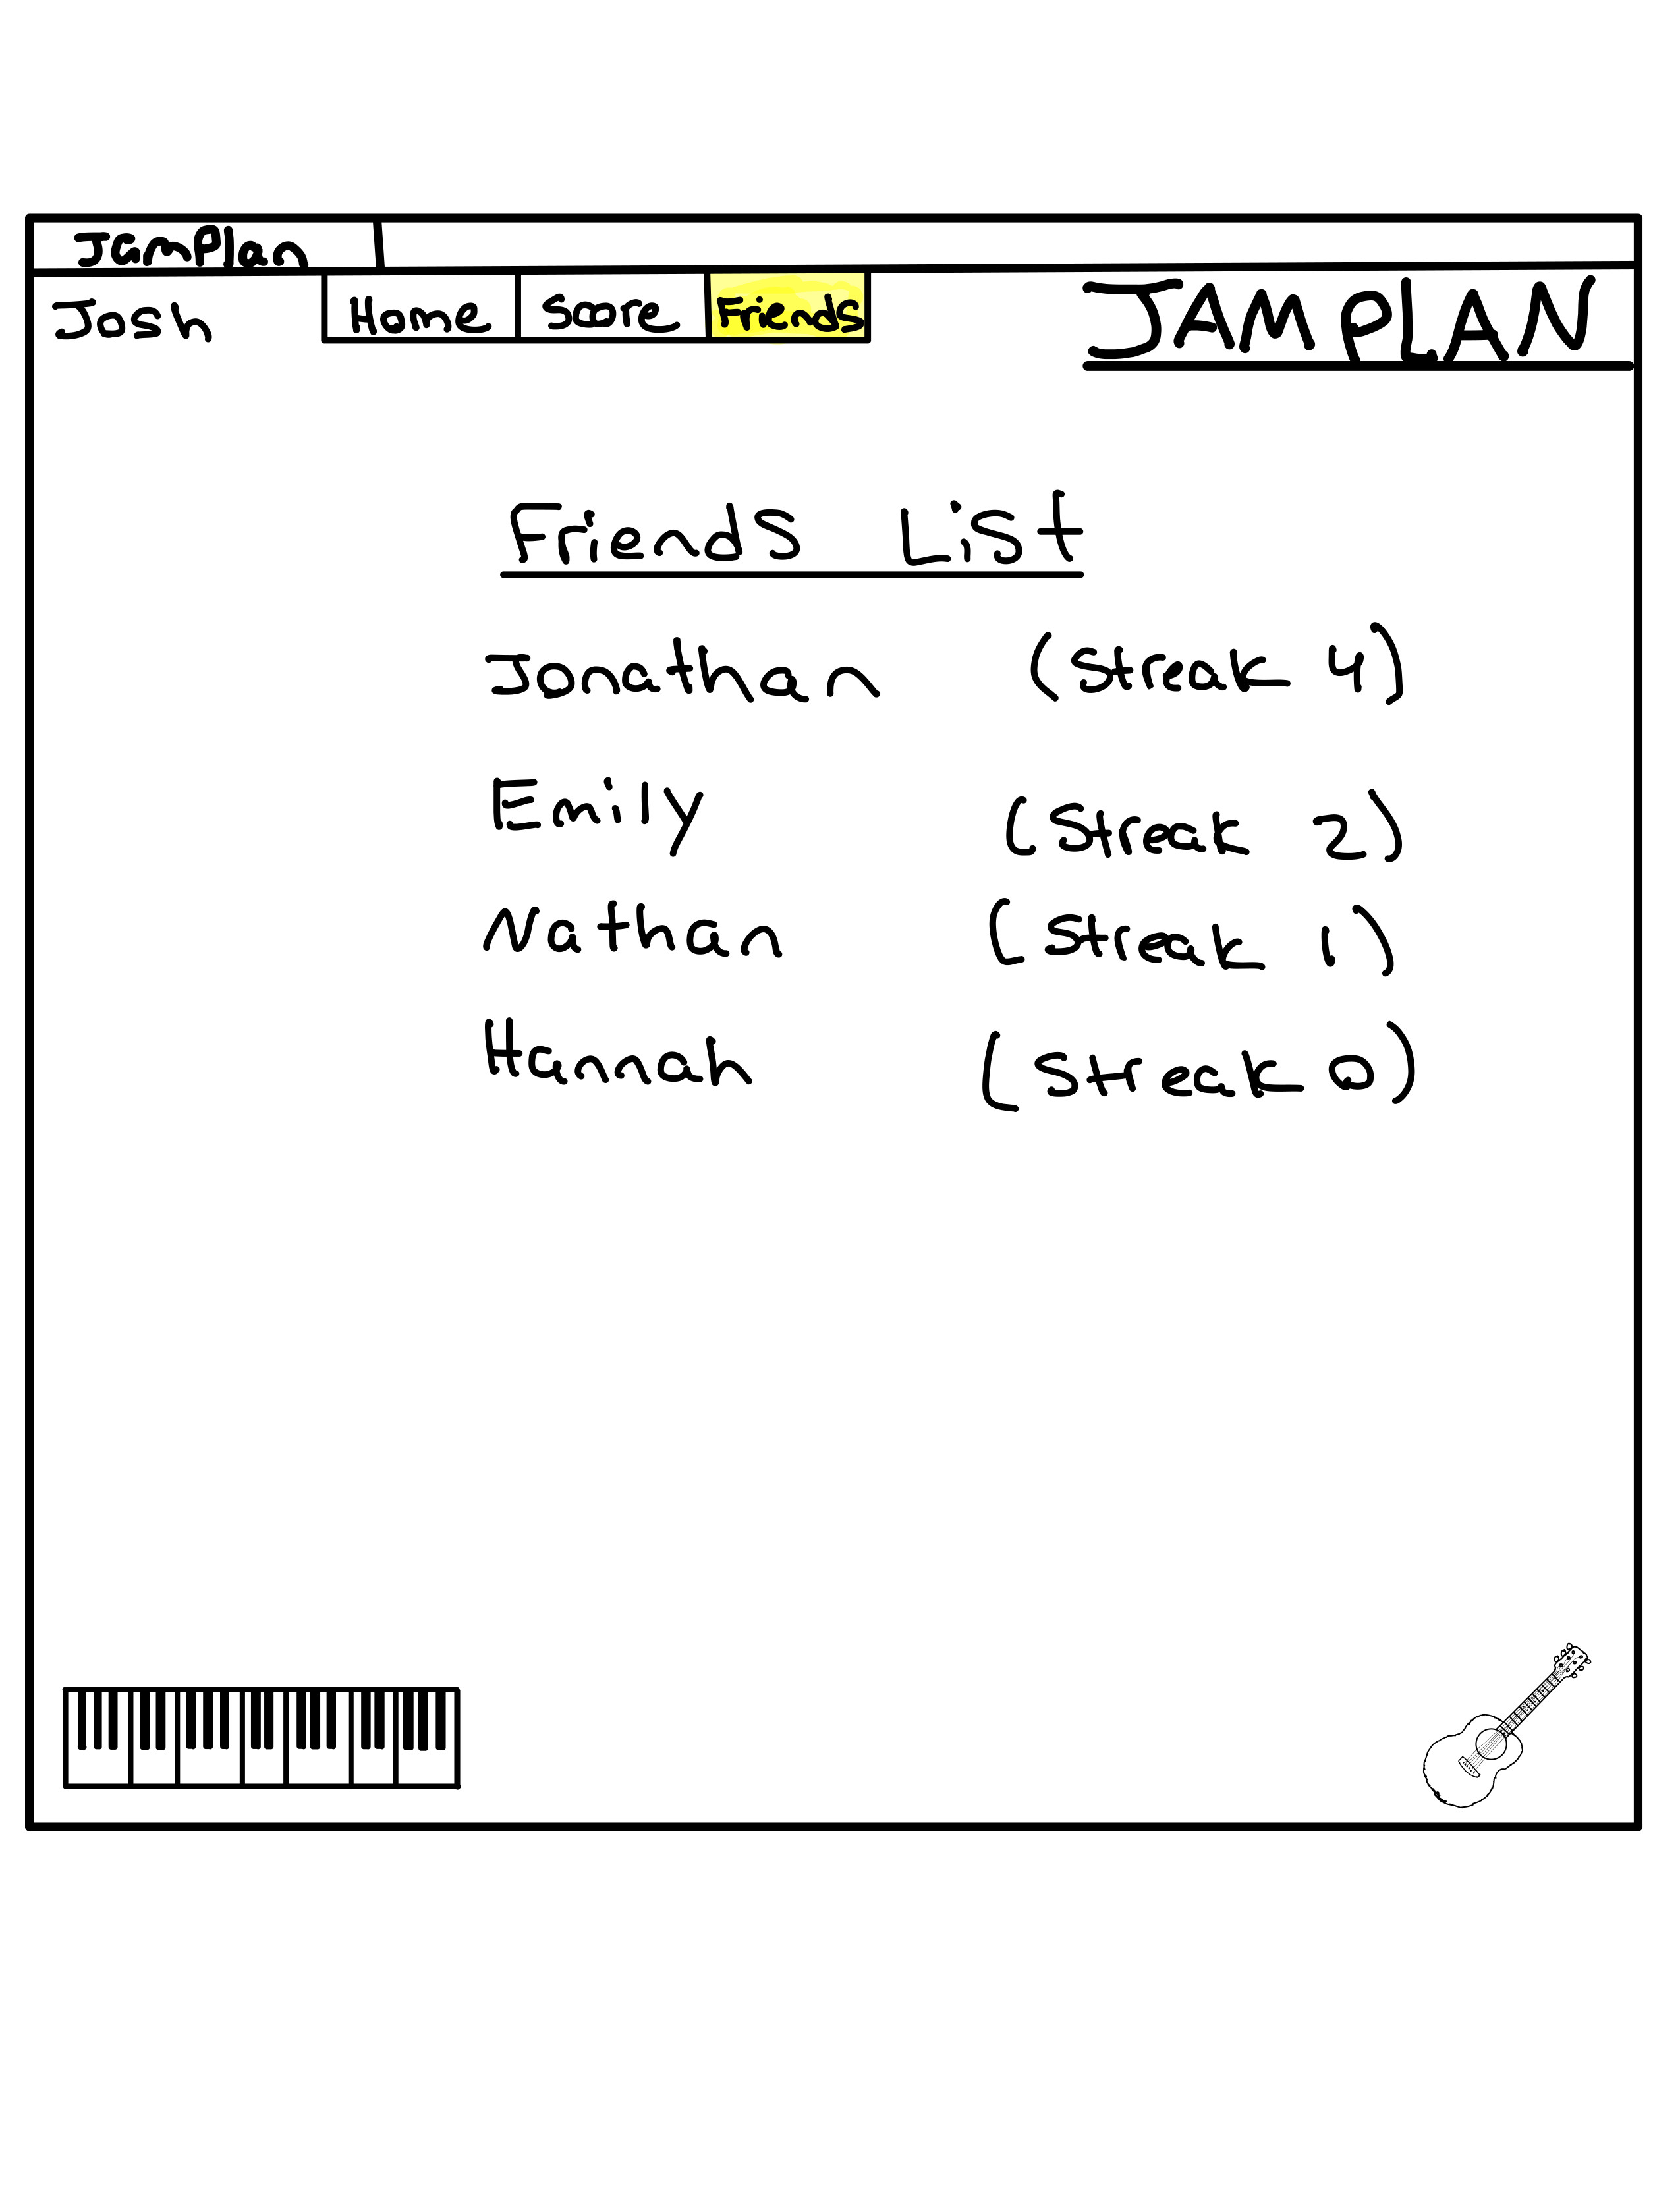 JamPlan
Josh Home Score Friends JAMPLAN
Friends List
Jonathan (Streak 4)
Emily (Streak 2)
Nathan (Streak 1)
Hannah (Streak 0)